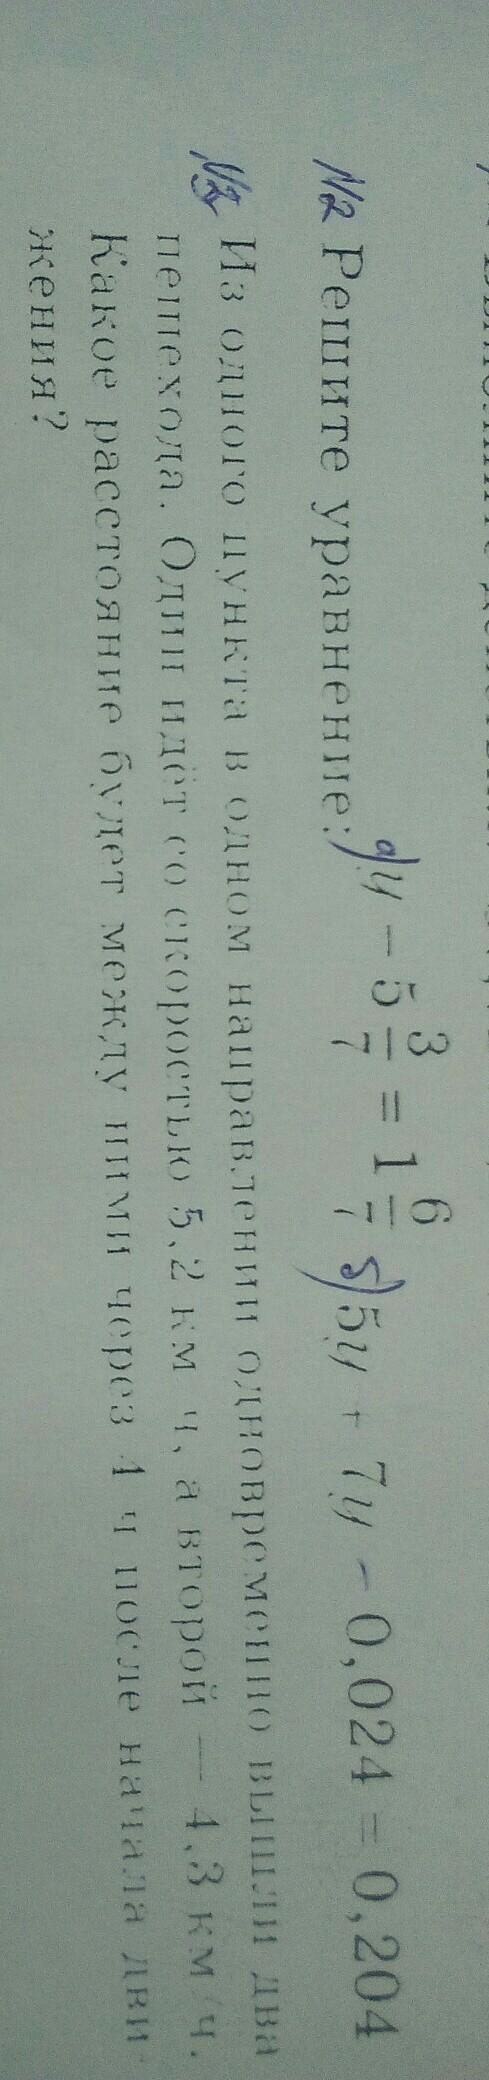 №2 Решите уравнение: а) y − 5 3/7 = 1 6/7 б) 5y + 7y − 0,024 = 0,204
№3 Из одного пункта в одном направлении одновременно вышли два
пешехода. Один идёт со скоростью 5,2 км ч, а второй — 4,3 км/ч.
Какое расстояние будет между ними через 4 ч после начала дви
жения?